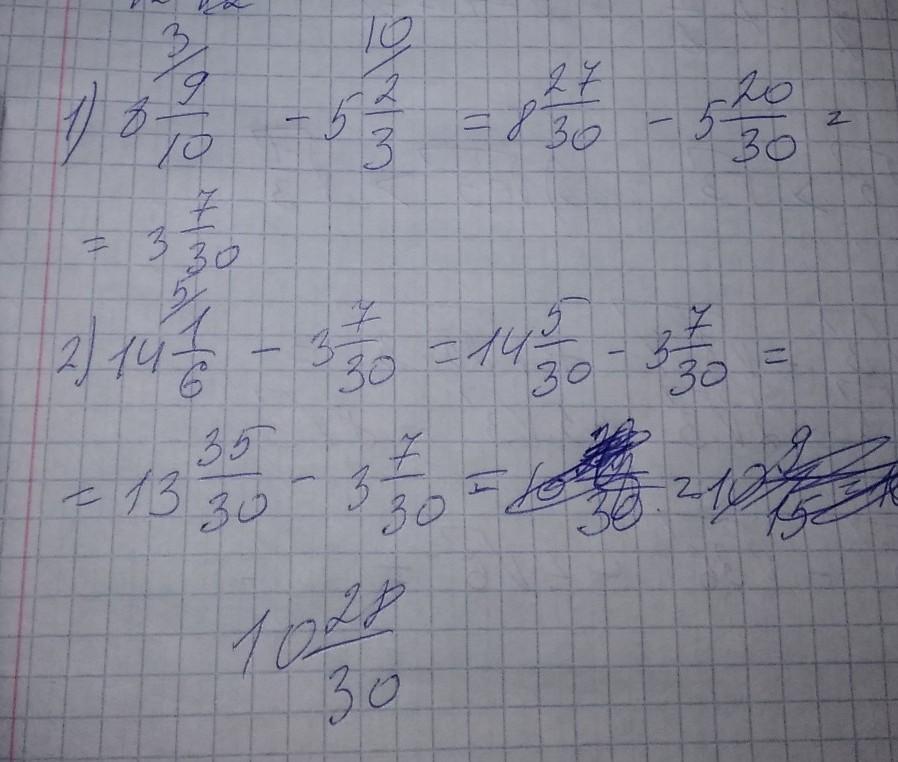 1) 8 9/10 (3/) - 5 2/3 (10/) = 8 27/30 - 5 20/30 =
= 3 7/30
2) 14 1/6 (5/) - 3 7/30 = 14 5/30 - 3 7/30 =
= 13 35/30 - 3 7/30 =
10 28/30